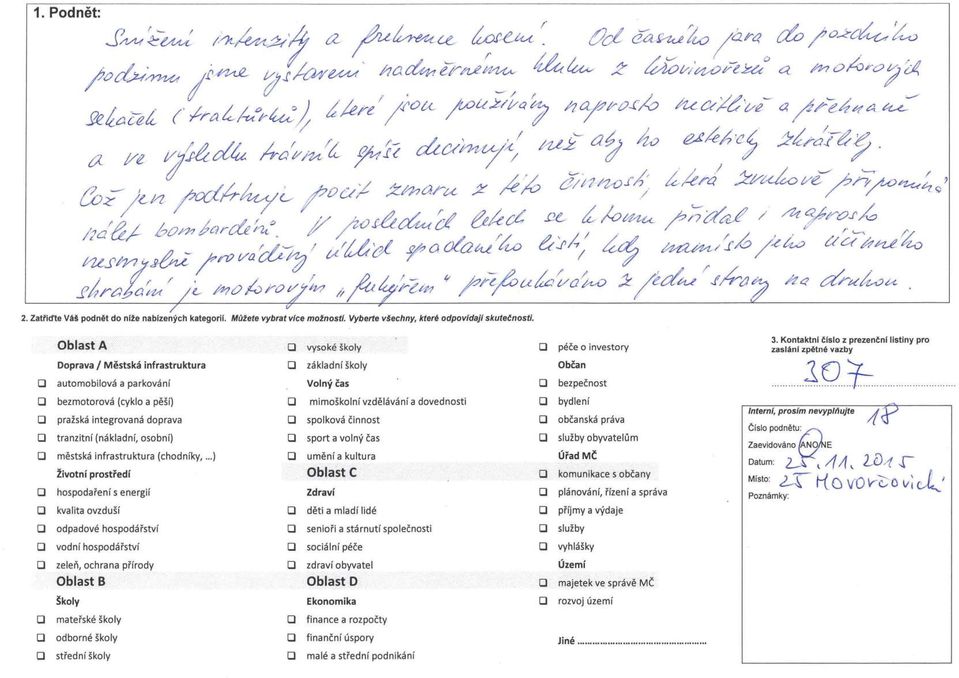 1. Podnět:
Snížení intenzity a frekvence kosení. Od časného jara do pozdního
podzimu jsme vystaveni nadměrnému hluku z křovinořezů a motorových
sekaček (traktůrků), které jsou používány naprosto necitlivě a přehnaně
a ve výsledku trávník spíše decimují, než aby ho esteticky zkrášlily.
Což jen podtrhuje pocit zmaru z této činnosti, která zvukově připomíná
nálet bombardérů. V posledních letech se k tomu přidal i naprosto
nesmyslně prováděný úklid spadaného listí, kdy namísto jeho účinného
shrabání je motorovým „fukýřem“ přefoukáváno z jedné strany na druhou.
2. Zatřiďte Váš podnět do níže nabízených kategorií. Můžete vybrat více možností. Vyberte všechny, které odpovídají skutečnosti.
Oblast A
Doprava / Městská infrastruktura
automobilová a parkování
bezmotorová (cyklo a pěší)
pražská integrovaná doprava
tranzitní (nákladní, osobní)
městská infrastruktura (chodníky, ...)
Životní prostředí
hospodaření s energií
kvalita ovzduší
odpadové hospodářství
vodní hospodářství
zeleň, ochrana přírody
Oblast B
Školy
mateřské školy
odborné školy
střední školy
vysoké školy
základní školy
Volný čas
mimoškolní vzdělávání a dovednosti
spolková činnost
sport a volný čas
umění a kultura
Oblast C
Zdraví
děti a mladí lidé
senioři a stárnutí společnosti
sociální péče
zdraví obyvatel
Oblast D
Ekonomika
finance a rozpočty
finanční úspory
malé a střední podnikání
péče o investory
Občan
bezpečnost
bydlení
občanská práva
služby obyvatelům
Úřad MČ
komunikace s občany
plánování, řízení a správa
příjmy a výdaje
služby
vyhlášky
Území
majetek ve správě MČ
rozvoj území
Jiné ................................................
3. Kontaktní číslo z prezenční listiny pro
zaslání zpětné vazby
307
Interní, prosím nevyplňujte
Číslo podnětu: 18
Zaevidováno ANO/NE
Datum: 25.11.2015
Místo: ZŠ Hovorčovická
Poznámky: